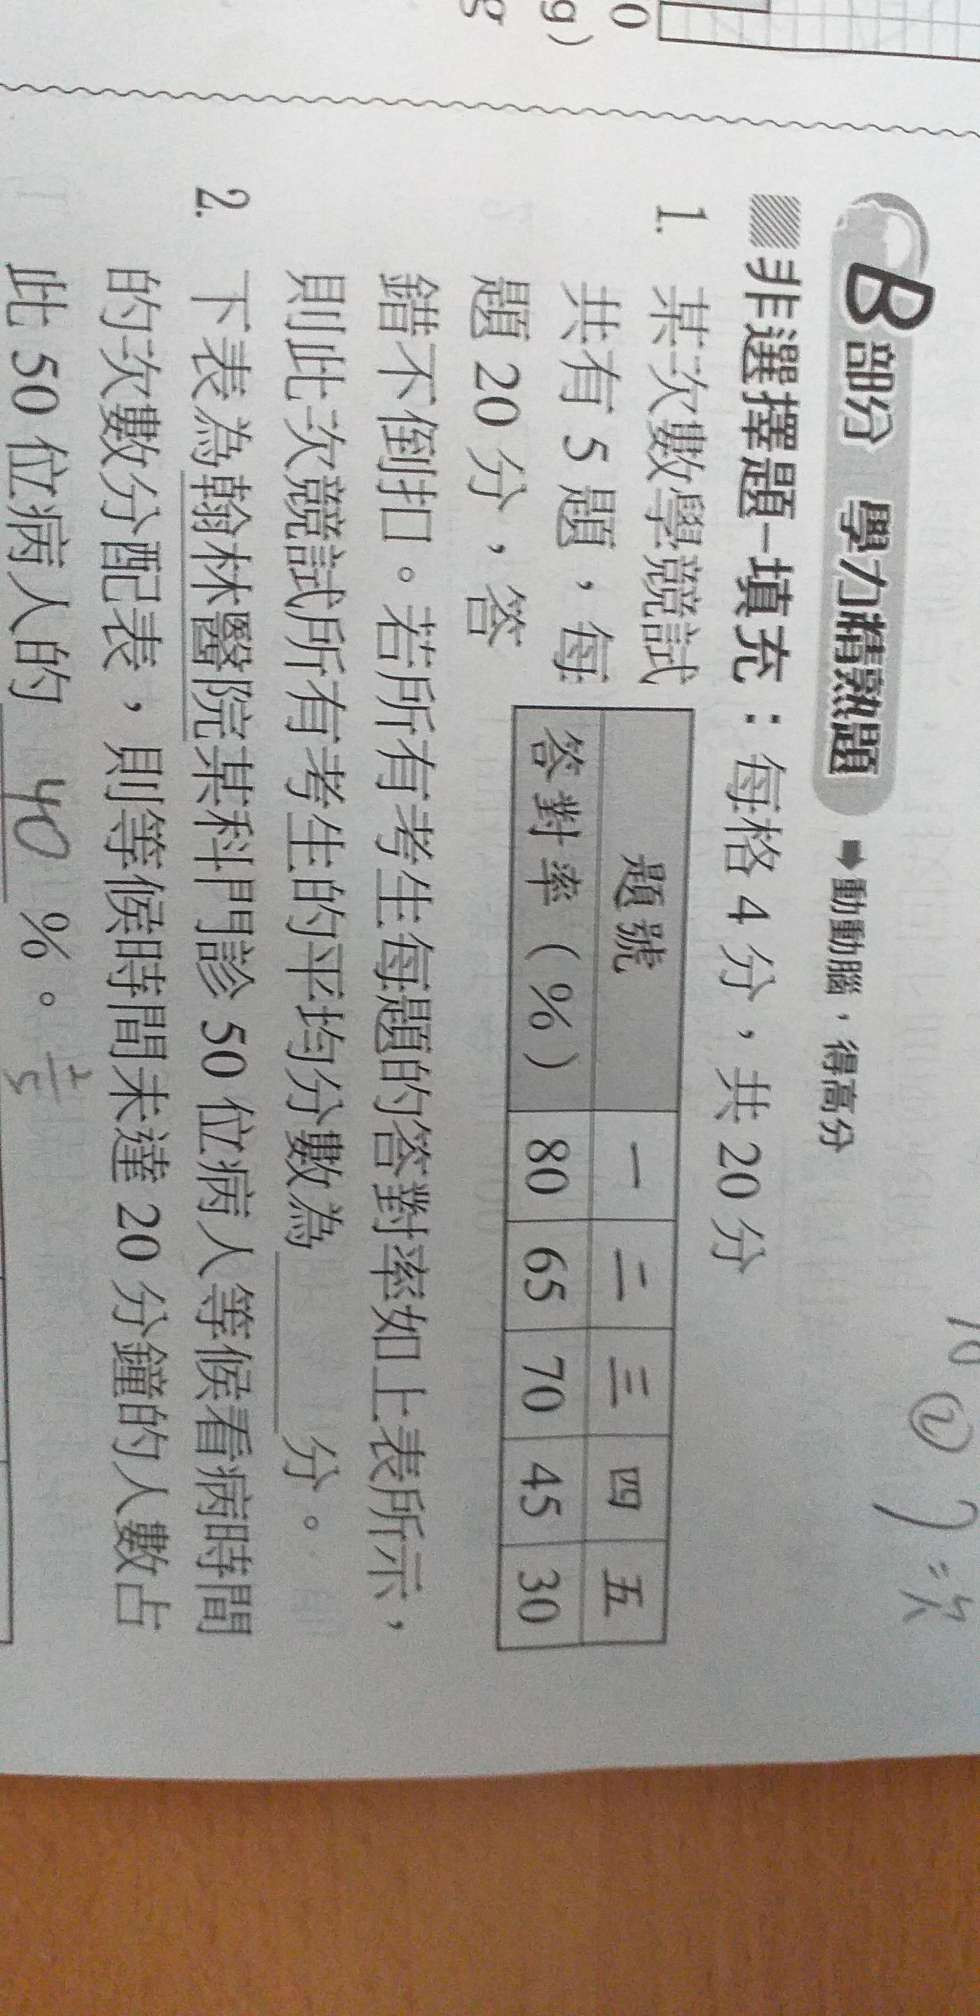 B部分 學力精熟題 ➡動動腦,得高分
非選擇題-填充:每格4分,共20分
1. 某次數學競試
共有5題,每
題20分,答
題號 一 二 三 四 五
答對率(%) 80 65 70 45 30
錯不倒扣。若所有考生每題的答對率如上表所示,
則此次競試所有考生的平均分數為 分。
2. 下表為翰林醫院某科門診50位病人等候看病時間
的次數分配表,則等候時間未達20分鐘的人數占
此50位病人的 40 %。